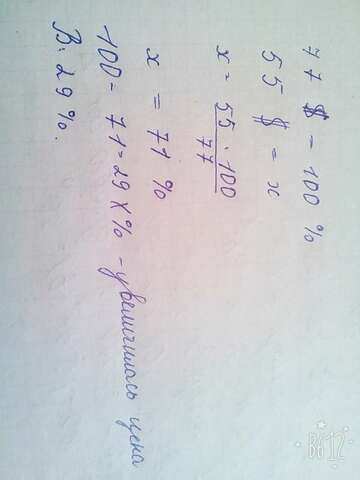 77 $ - 100 %
55 $ = x
x = 55 · 100
77
x = 71 %
100 - 71 = 29 % - увеличилась цена
В: 29 %.
B612